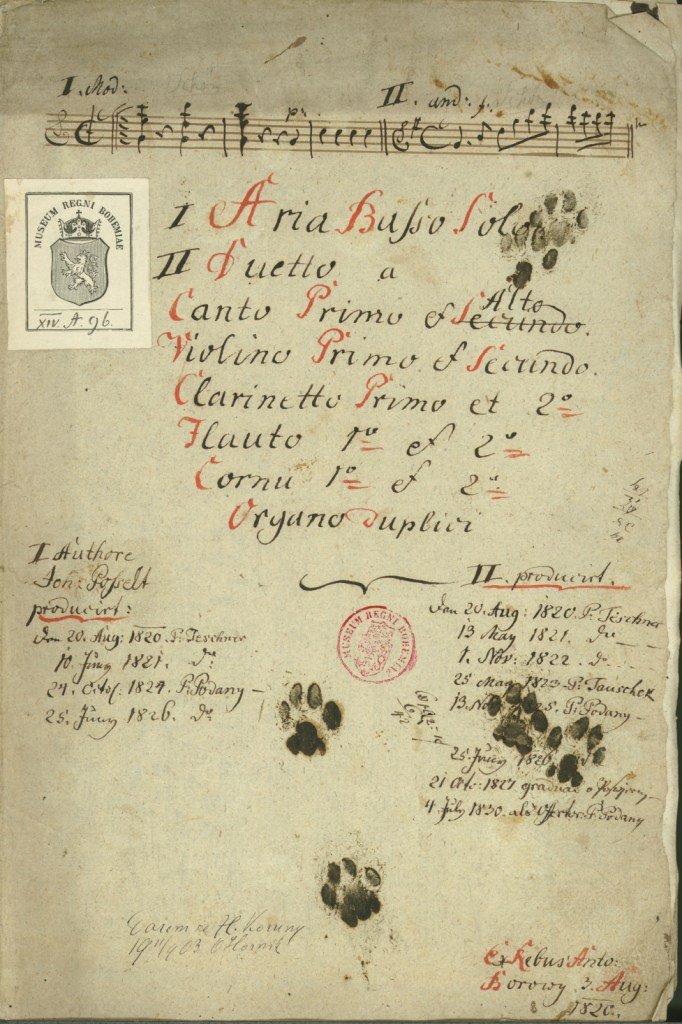 I. Mod:
II. and: f.
p:
MUSEUM REGNI BOHEMIAE
XIV. A. 96.
I Aria Basso Solo
II Duetto a
Canto Primo et Secundo. Alto
Violino Primo et Secundo.
Clarinetto Primo et 2º
Flauto 1º et 2º
Cornu 1º et 2º
Organo Duplici
I Authore
Jon: Posselt
producirt:
Den 20. Aug: 1820. P. Teschner
10. Juny 1821. dº
24. Octob: 1824. P. Podany —
25. Juny 1826. dº
II. producirt.
Den 20. Aug: 1820. P. Teschner
13 May 1821. dº
1. Nov: 1822. dº
25 May 1823. P. Tauschek
13. Nov 25. P. Podany —
25 Juny 1826 dº
21 Octo: 1827 graduae
4 July 1830. als Offertor: P. Podany
MUSEUM REGNI BOHEMIAE
Darem ze H. Koruny
1903 O. Hornik
Ex Rebus Anto:
Borowy 3. Aug:
1820.